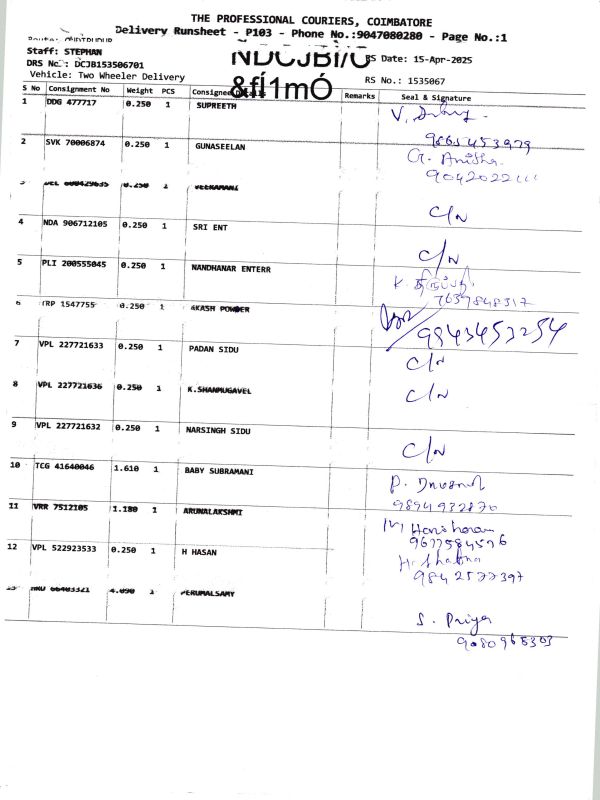 THE PROFESSIONAL COURIERS, COIMBATORE
Delivery Runsheet - P103 - Phone No.:9047080280 - Page No.:1
Staff: STEPHAN
RS Date: 15-Apr-2025
DRS No.: DCJB153506701
RS No.: 1535067
Vehicle: Two Wheeler Delivery
S No Consignment No Weight PCS Consignee Details Remarks Seal & Signature
1 DDG 477717 0.250 1 SUPREETH
2 SVK 70006874 0.250 1 GUNASEELAN
9865453979
G. Anitha
3 DEL 600429635 0.250 1 VEERAMANI
C/N
4 NDA 906712105 0.250 1 SRI ENT
C/N
5 PLI 200555045 0.250 1 NANDHANAR ENTERR
7639848317
6 TRP 1547755 0.250 1 AKASH POWDER
9843453254
7 VPL 227721633 0.250 1 PADAN SIDU
C/N
8 VPL 227721636 0.250 1 K.SHANMUGAVEL
C/N
9 VPL 227721632 0.250 1 NARSINGH SIDU
C/N
10 TCG 41640046 1.610 1 BABY SUBRAMANI
9894932870
11 VRR 7512105 1.180 1 ARUNALAKSHMI
9677584576
12 VPL 522923533 0.250 1 H HASAN
9842577397
13 66403321 4.090 1 PERUMALSAMY
S. Priya
9080965303